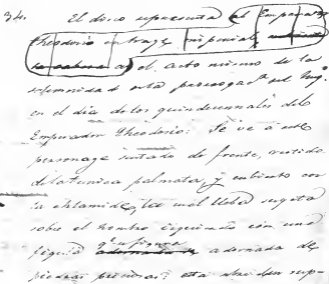 34. El disco representa el Emperador
Theodosio en trage imperial,
en el acto mismo de la
solemnidad de esta
en el dia de los quindecennales del
Emperador Theodosio: Se vé á este
personage sentado de frente, vestido
de la tunica palmata, y cubierto con
la chlamide, la cual lleba sugeta
sobre el hombro izquierdo con una
figura adornada de
piedras preciosas: esta